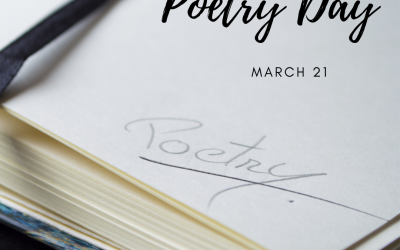 Poetry Day
MARCH 21
Poetry.